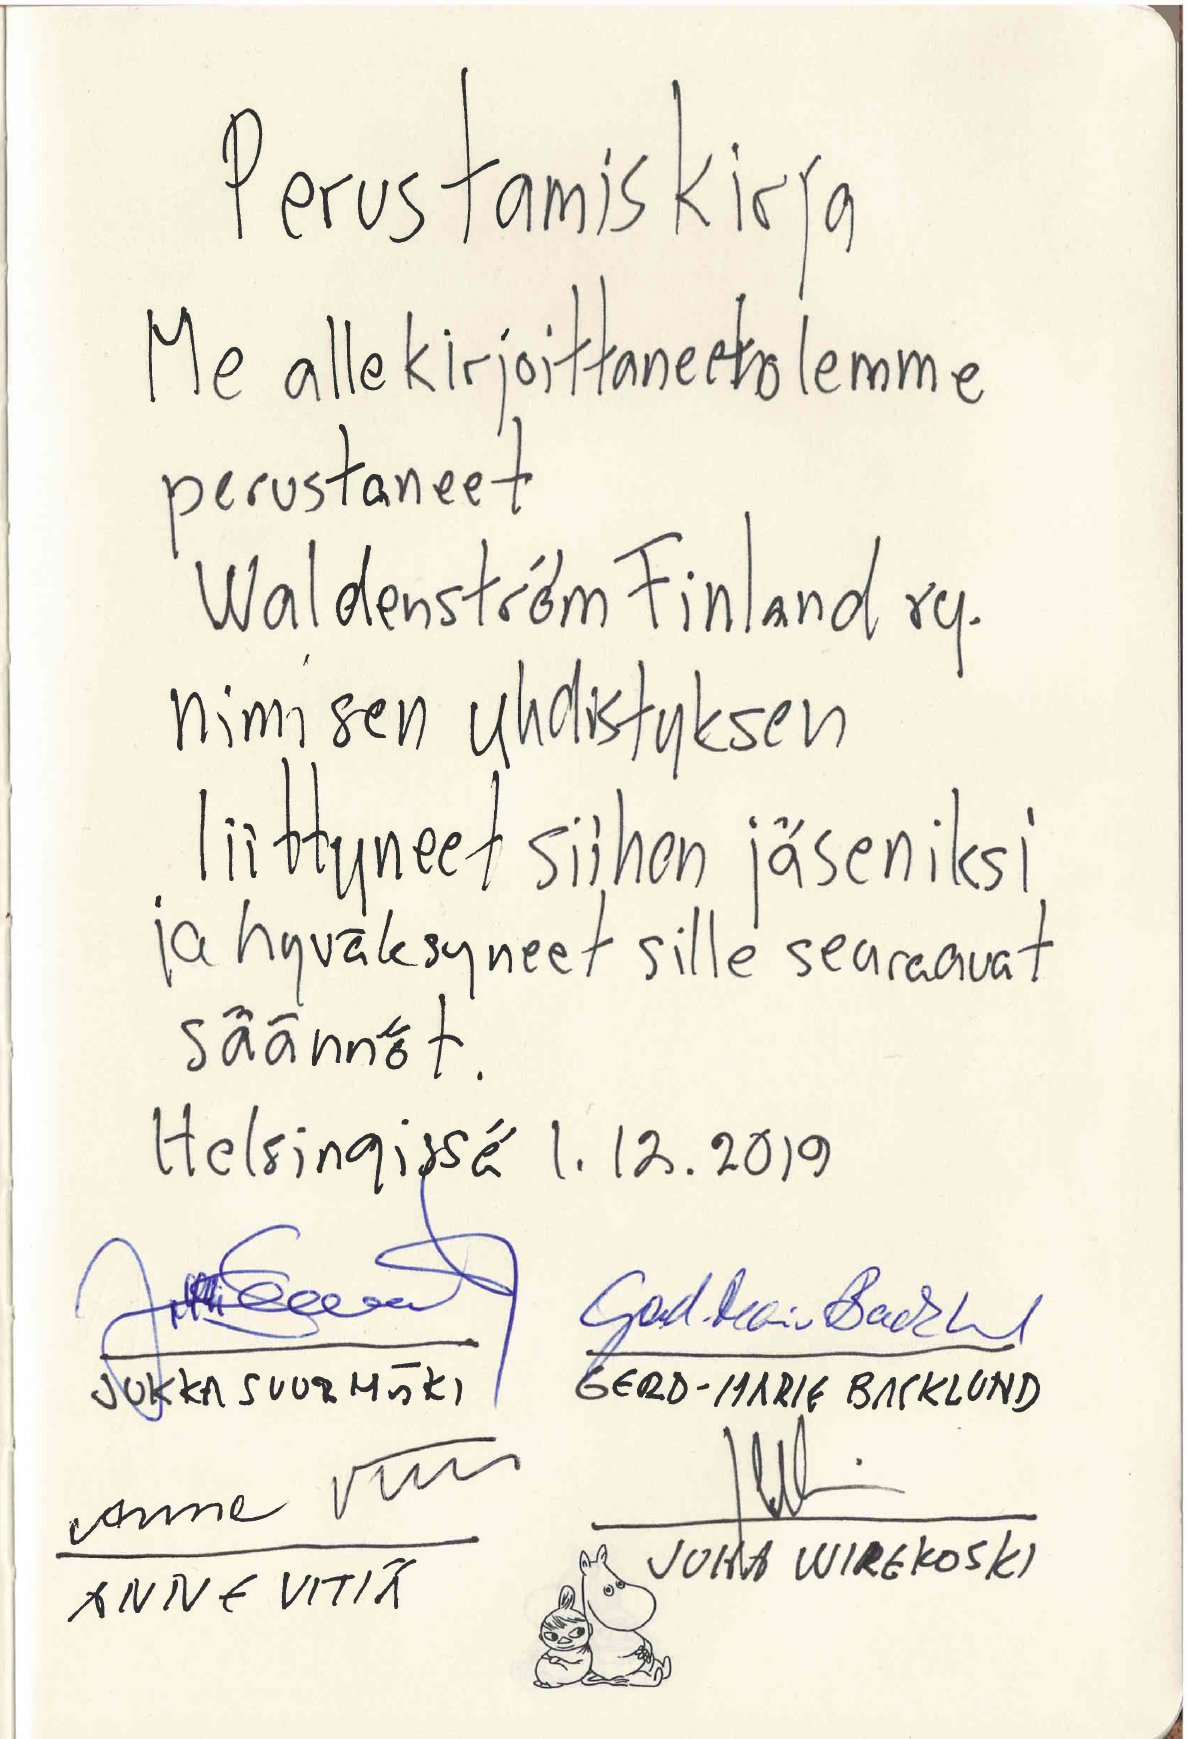 Perustamiskirja
Me allekirjoittaneet olemme
perustaneet
Waldenström Finland ry.
nimisen yhdistyksen
liittyneet siihen jäseniksi
ja hyväksyneet sille seuraavat
säännöt.
Helsingissä 1.12.2019
JUKKA SUURMÄKI GERD-MARIE BACKLUND
Anne
ANNE VITIÄ JUHA WIREKOSKI